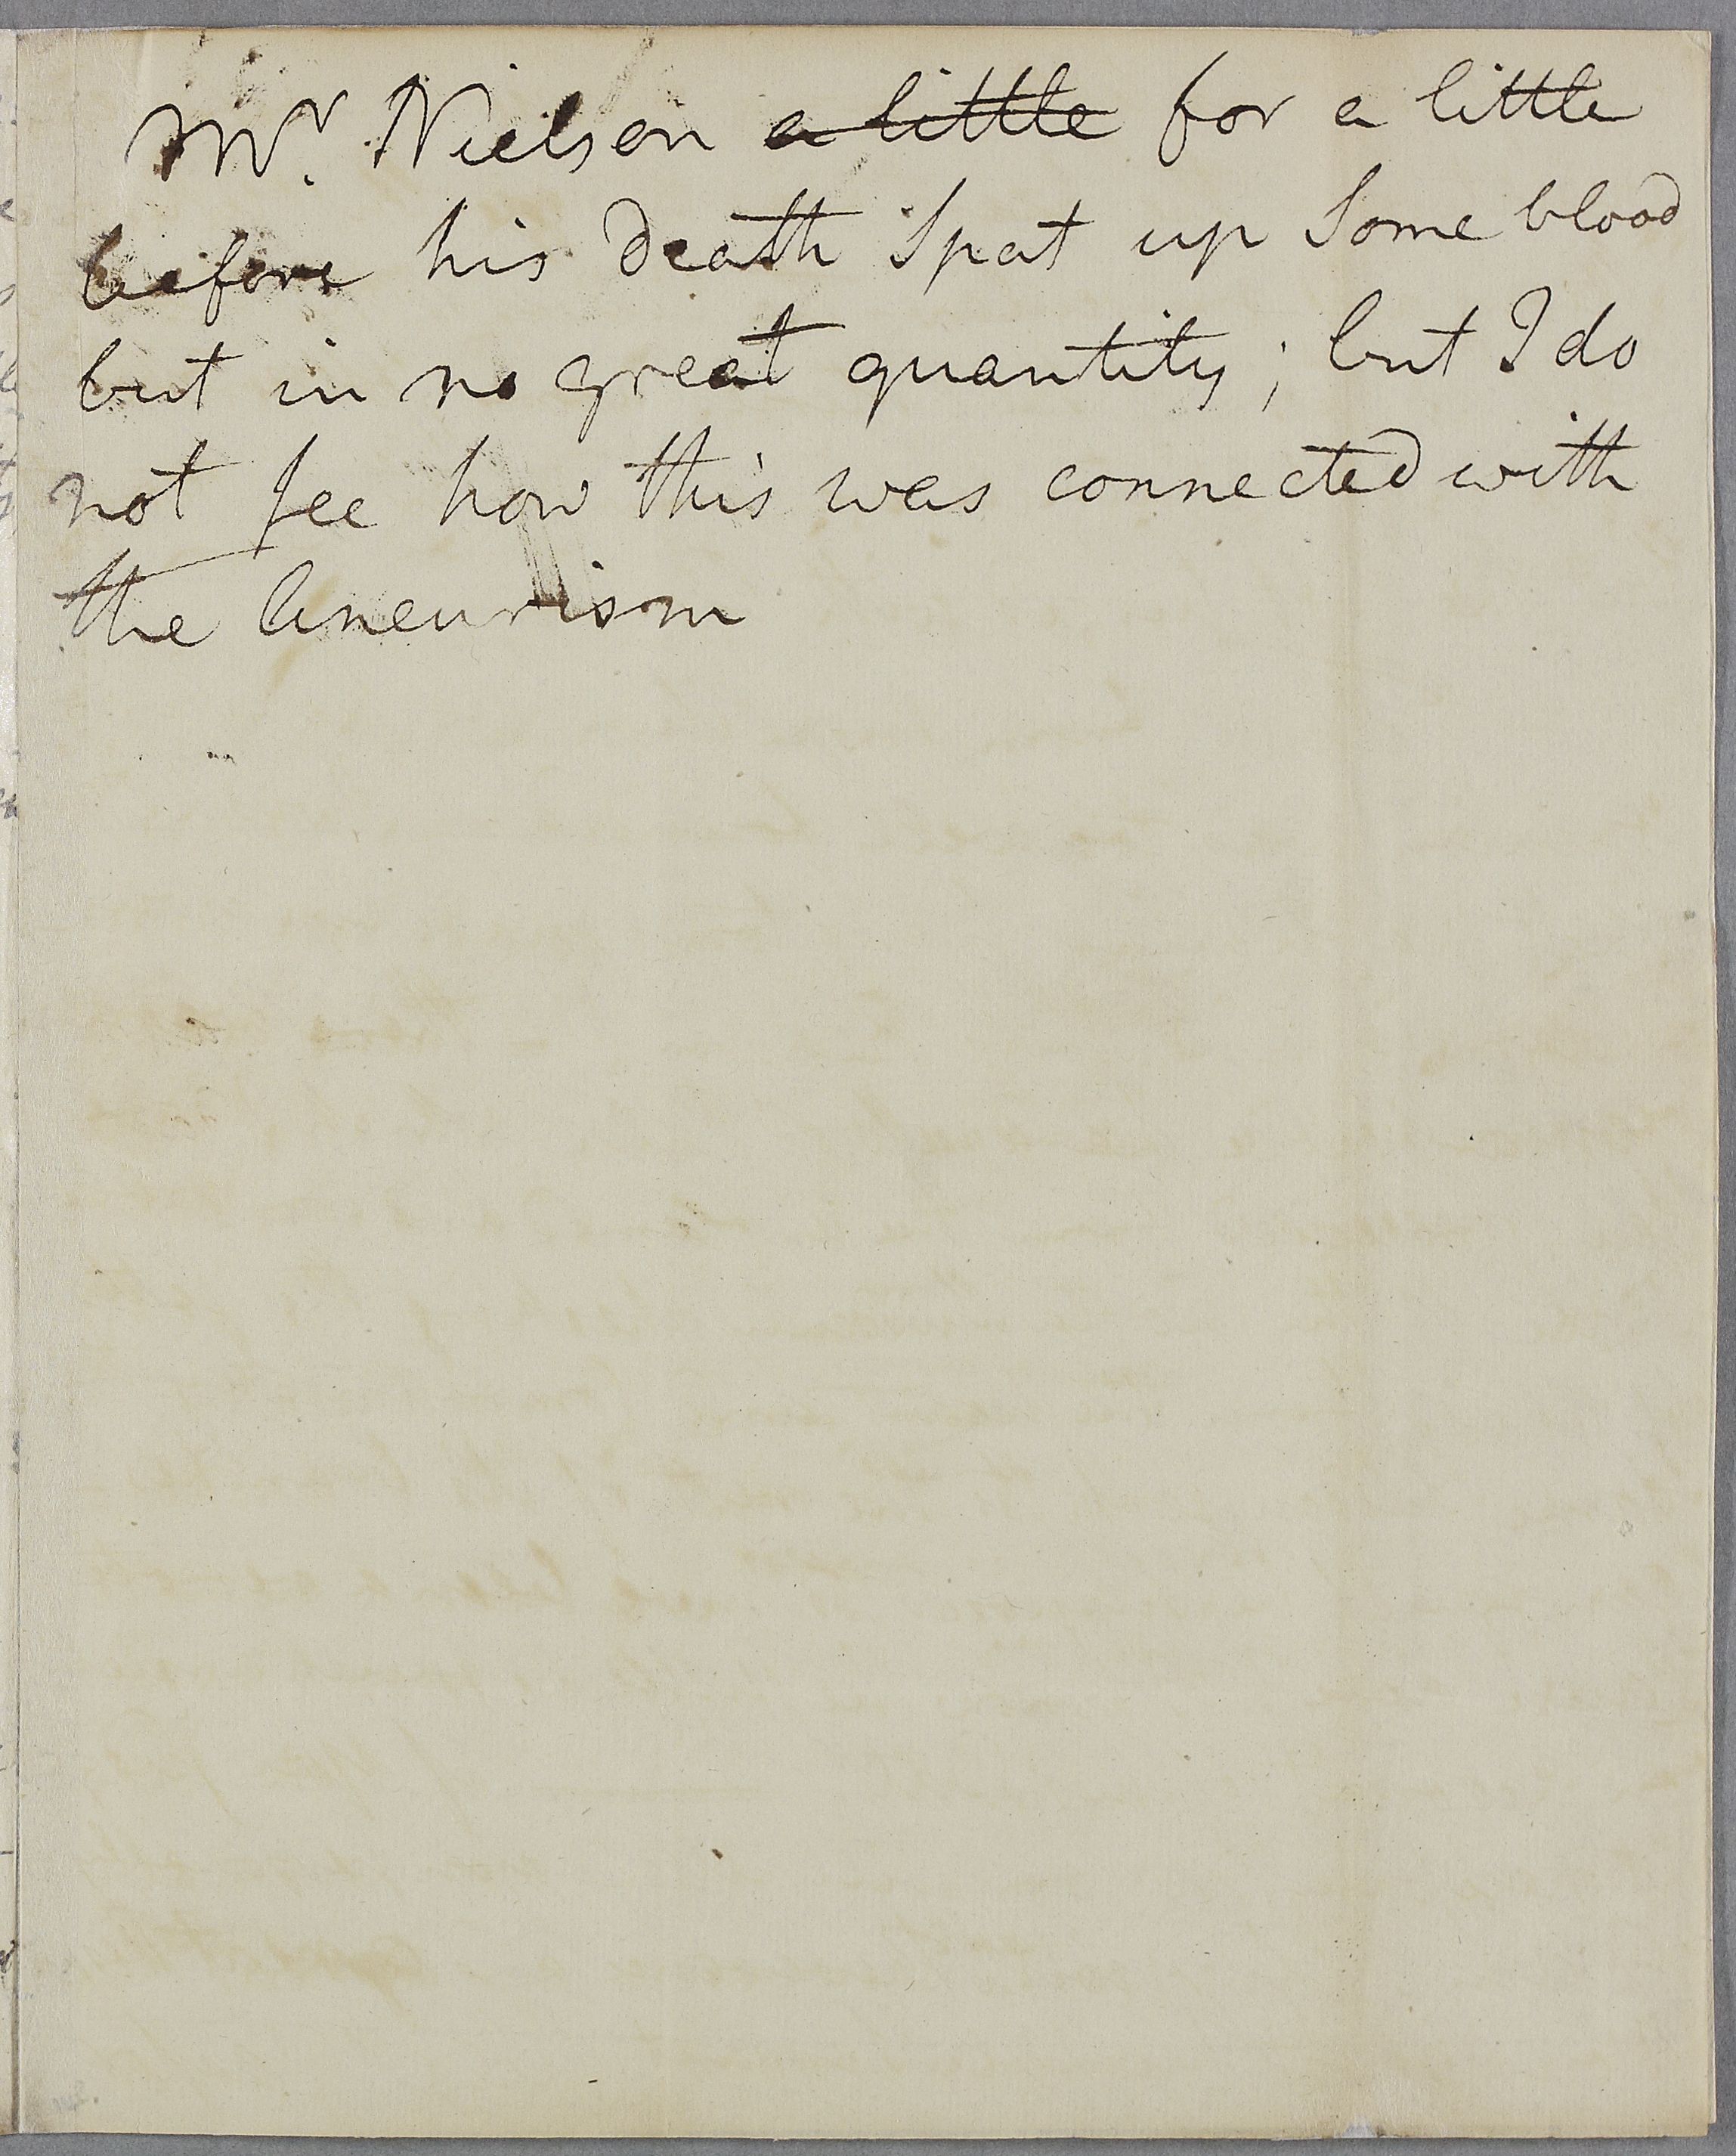 Mr. Nielson a little for a little
before his death spat up some blood
but in no great quantity; but I do
not see how this was connected with
the Aneurism